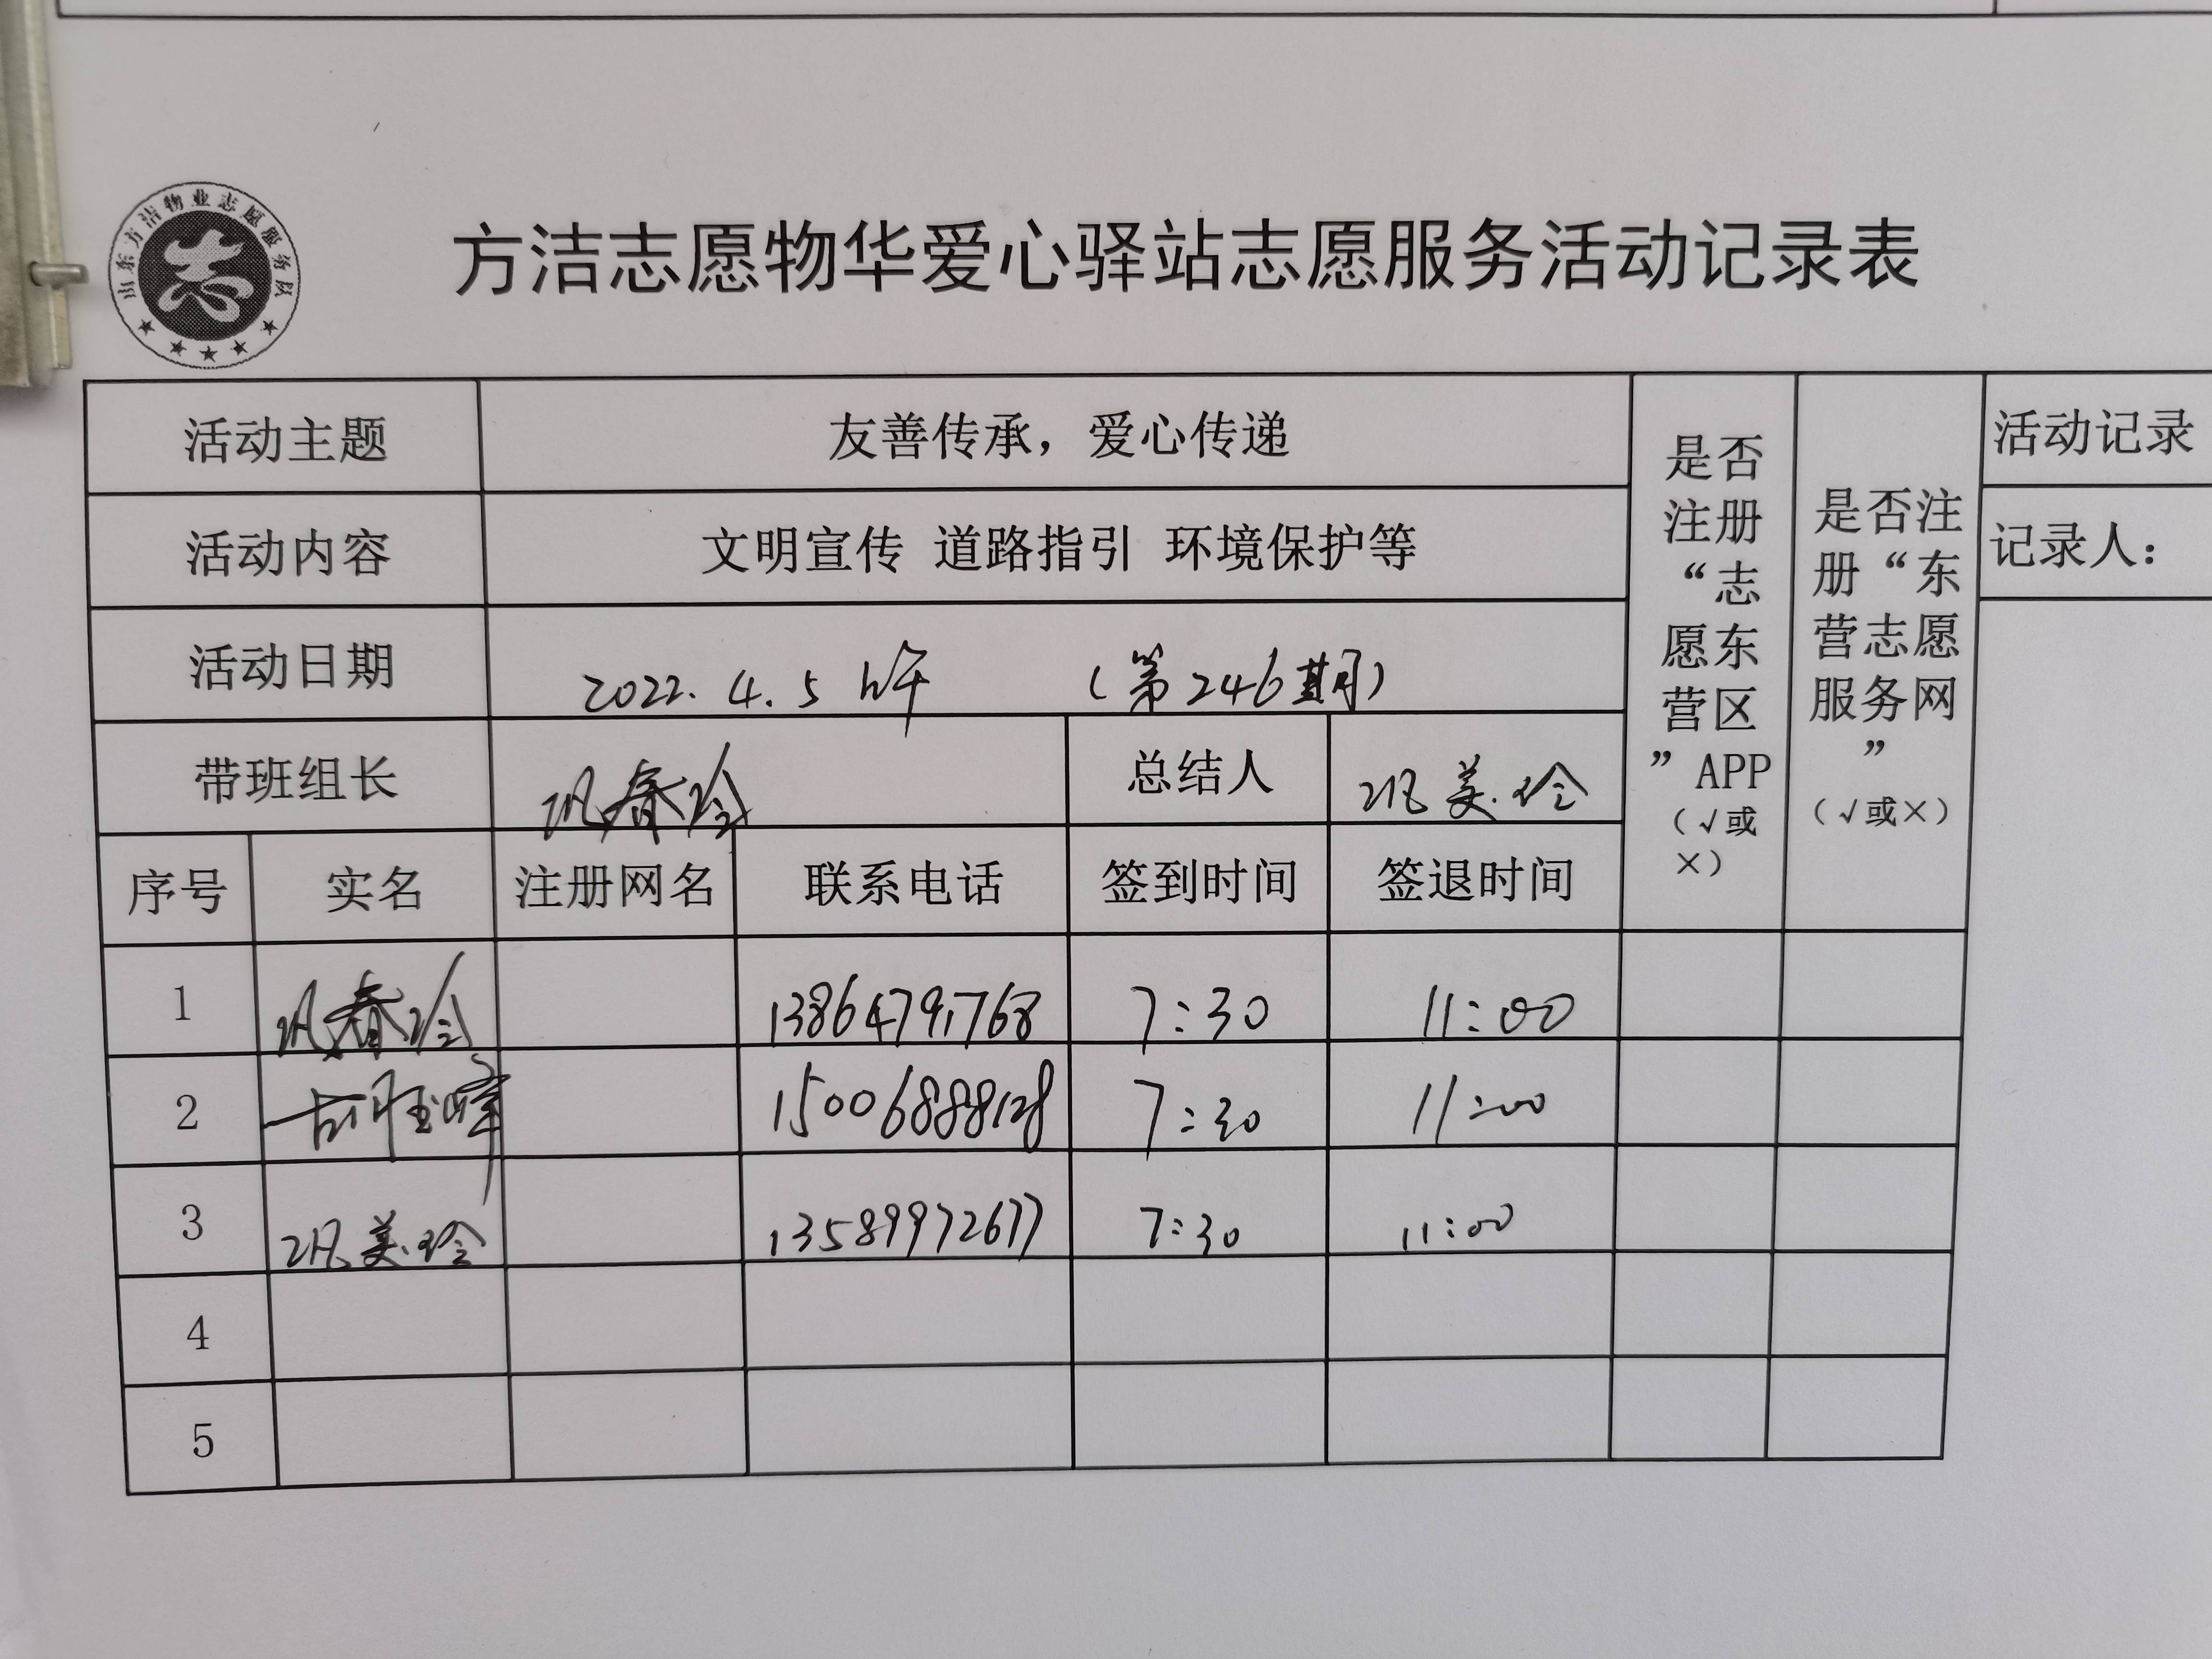 山东方洁物业志愿服务队
方洁志愿物华爱心驿站志愿服务活动记录表
活动主题 友善传承，爱心传递
活动内容 文明宣传 道路指引 环境保护等
活动日期 2022.4.5 上午 （第246期）
带班组长 巩春玲 总结人 巩美玲
序号 实名 注册网名 联系电话 签到时间 签退时间
是否
注册
“志
愿东
营区
”APP
（√或
×）
是否注
册“东
营志愿
服务网
”
（√或×）
活动记录
记录人：
1 巩春玲 13864791768 7:30 11:00
2 15006888128 7:30 11:00
3 巩美玲 13589972677 7:30 11:00
4
5